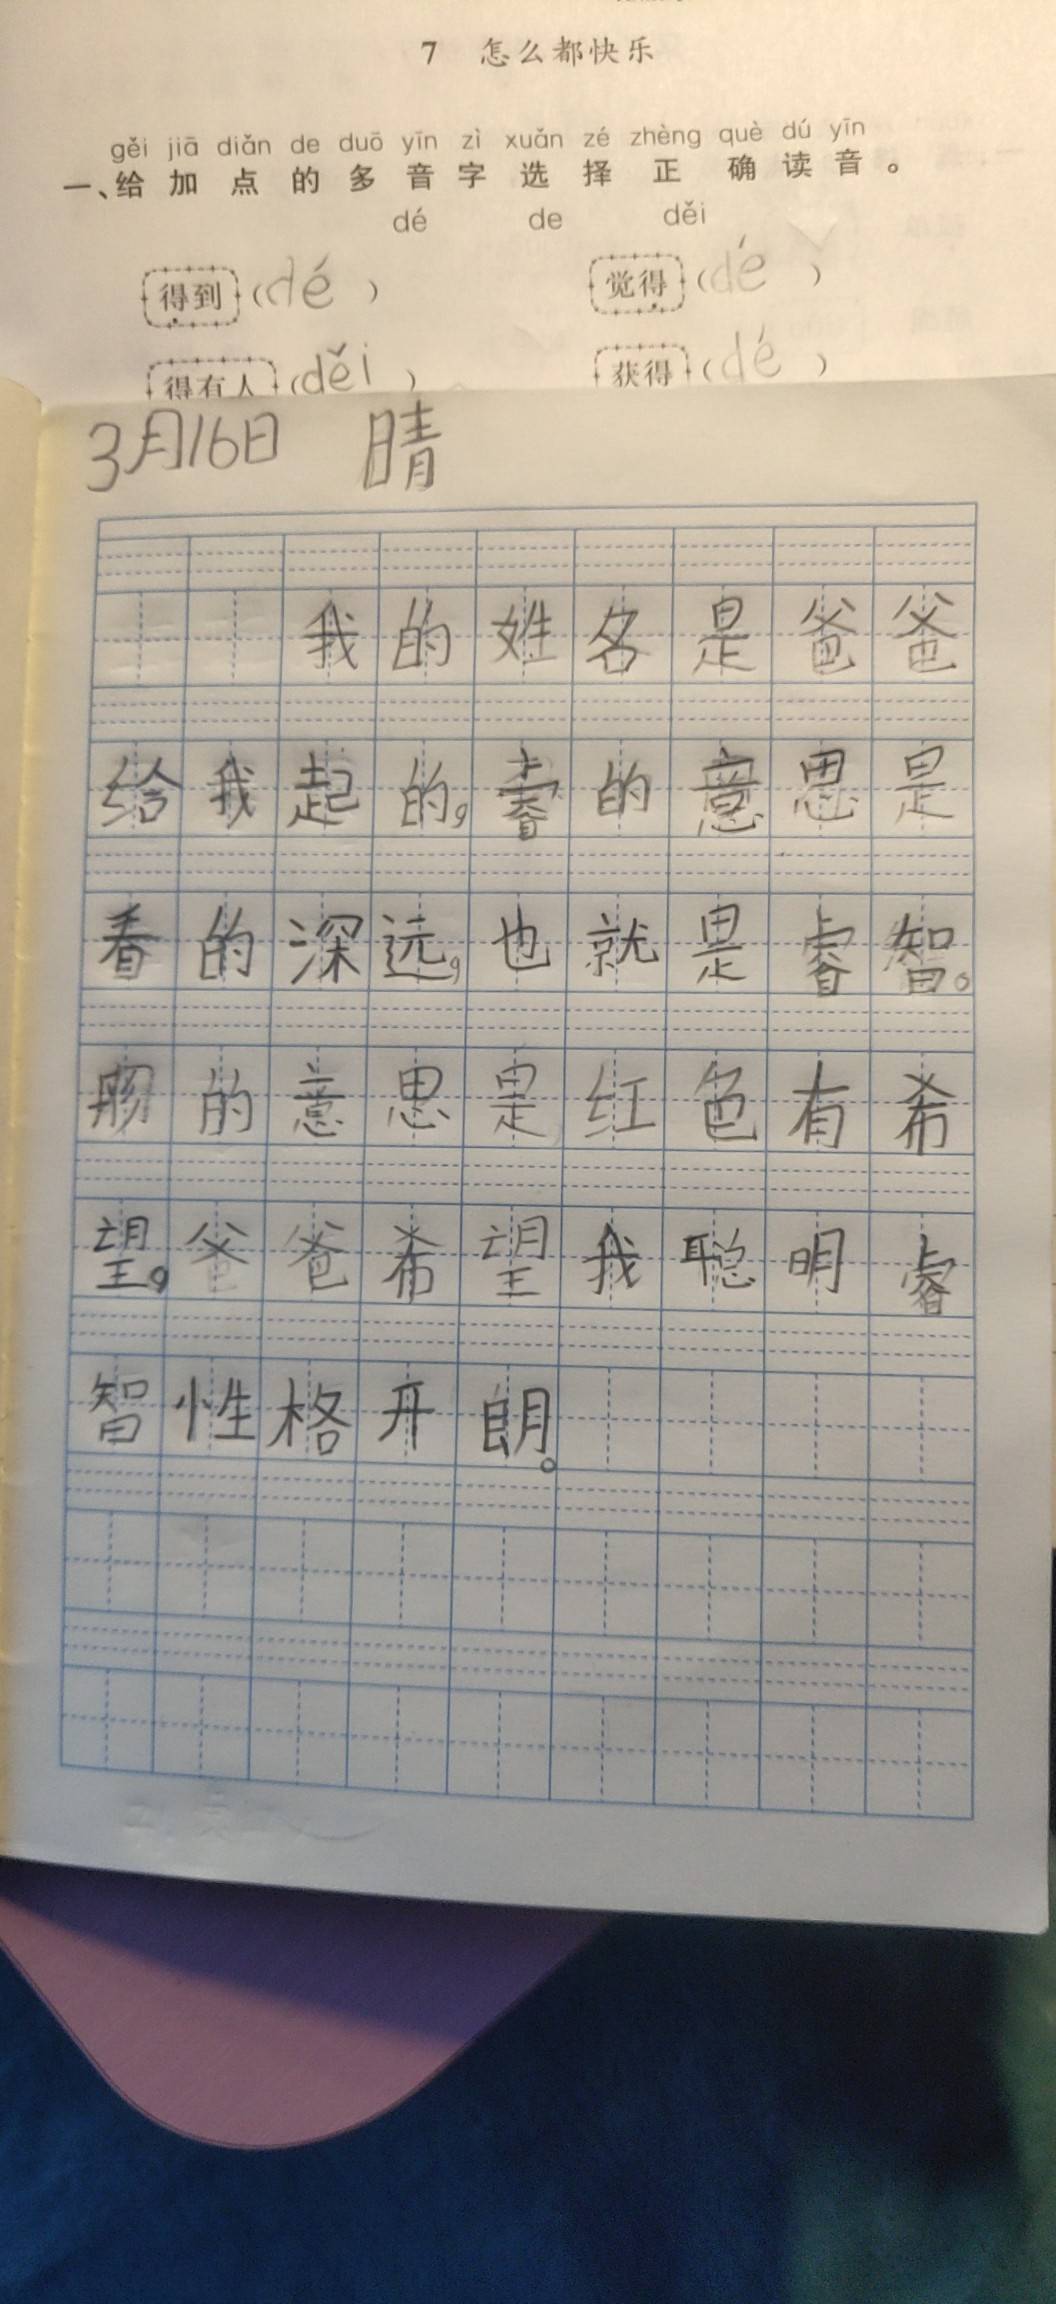 7 怎么都快乐
gěi jiā diǎn de duō yīn zì xuǎn zé zhèng què dú yīn
一、给加点的多音字选择正确读音。
dé de děi
得到(dé) 觉得(dé)
得有人(děi) 获得(dé)
3月16日 晴
我的姓名是爸爸
给我起的,睿的意思是
看的深远,也就是睿智。
的意思是红色有希
望,爸爸希望我聪明睿
智性格开朗。